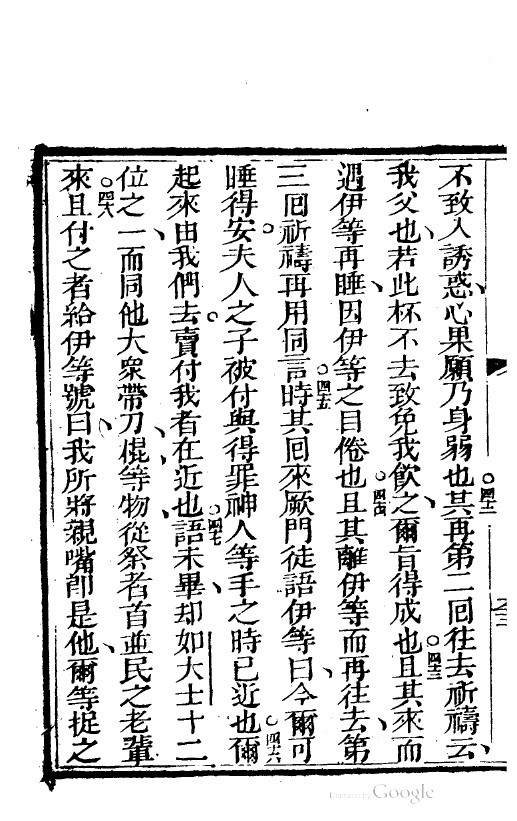 不致入誘惑心果願乃身弱也○四二其再第二回往去祈禱云
我父也若此杯不去致免我飲之爾旨得成也○四三且其來而
遇伊等再睡因伊等之目倦也○四四且其離伊等而再往去第
三回祈禱再用同言○四五時其回來厥門徒語伊等曰今爾可
睡得安夫人之子被付與得罪神人等手之時已近也○四六爾
起來由我們去賣付我者在近也○四七語未畢却如大士十二
位之一而同他大衆帶刀棍等物從祭者首並民之老輩
來○四八且付之者給伊等號曰我所將親嘴即是他爾等捉之
Digitized by Google